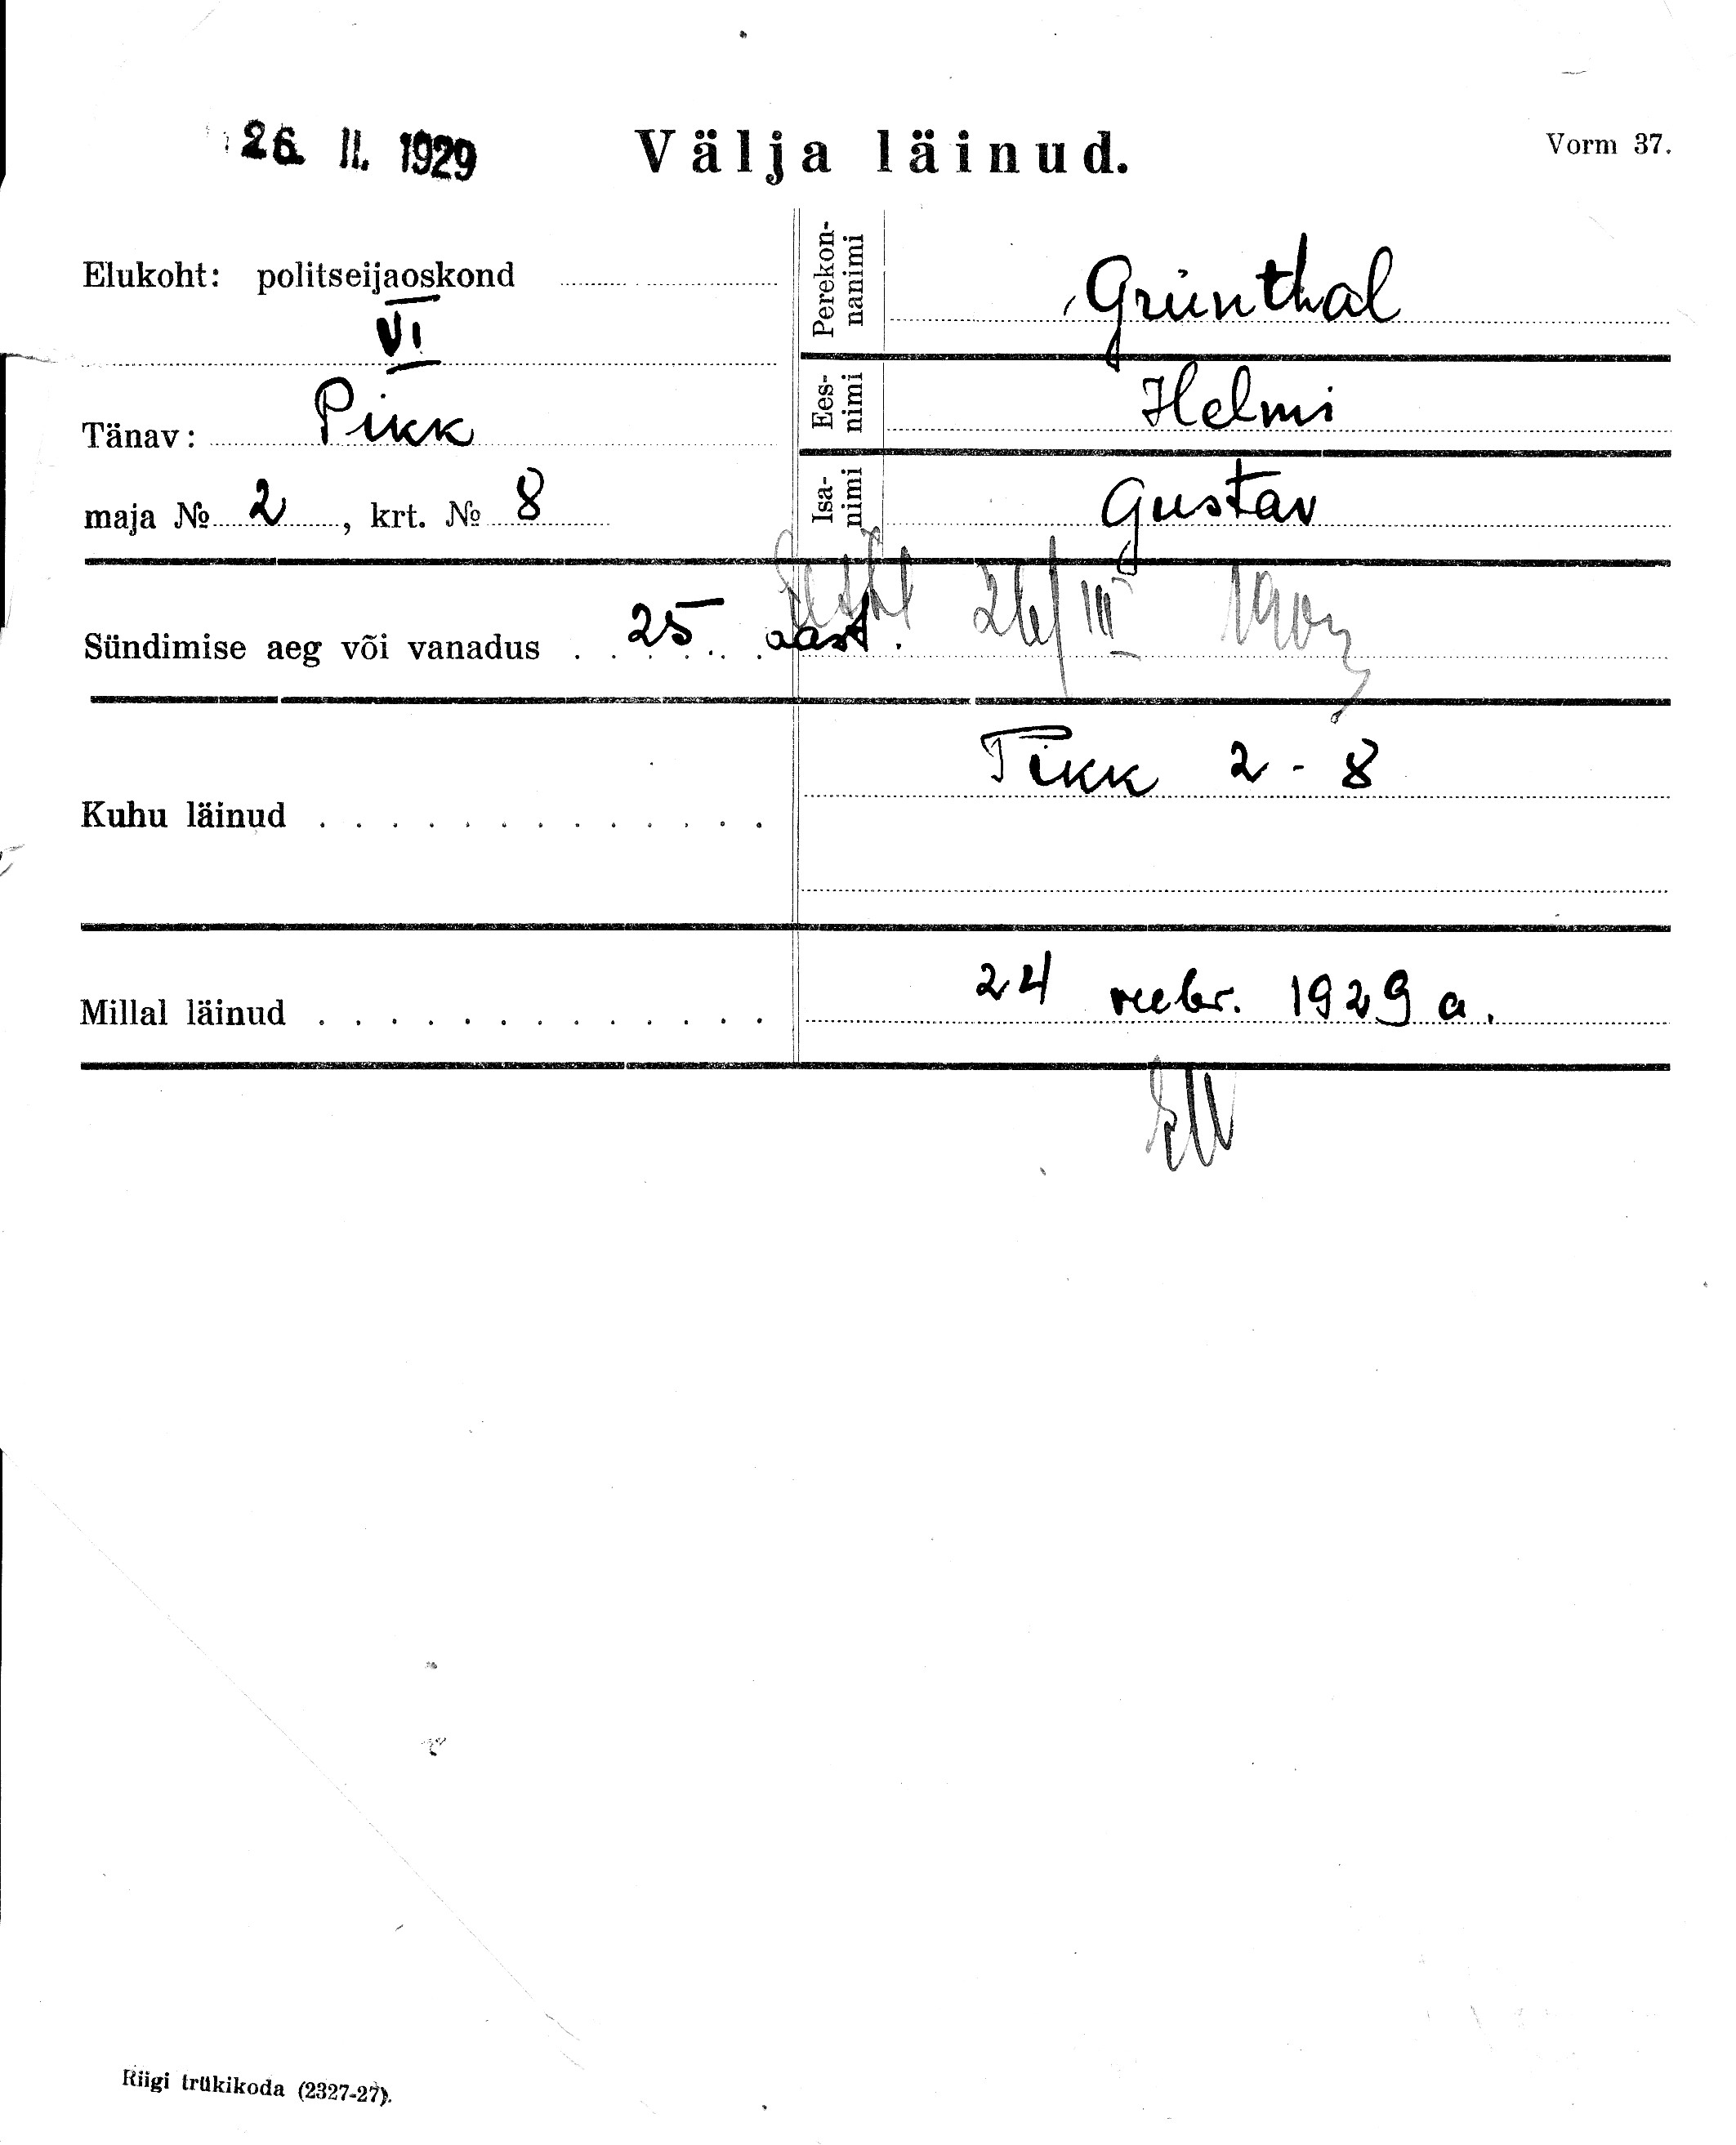 26. II. 1929
Välja läinud.
Vorm 37.
Elukoht: politseijaoskond
VI
Tänav: Pikk
maja № 2, krt. № 8
Perekon-
nanimi
Grünthal
Ees-
nimi
Helmi
Isa-
nimi
Gustav
Sündimise aeg või vanadus 25 aast. 26/III
Kuhu läinud
Pikk 2 - 8
Millal läinud
24 veebr. 1929 a.
Riigi trükikoda (2327-27).